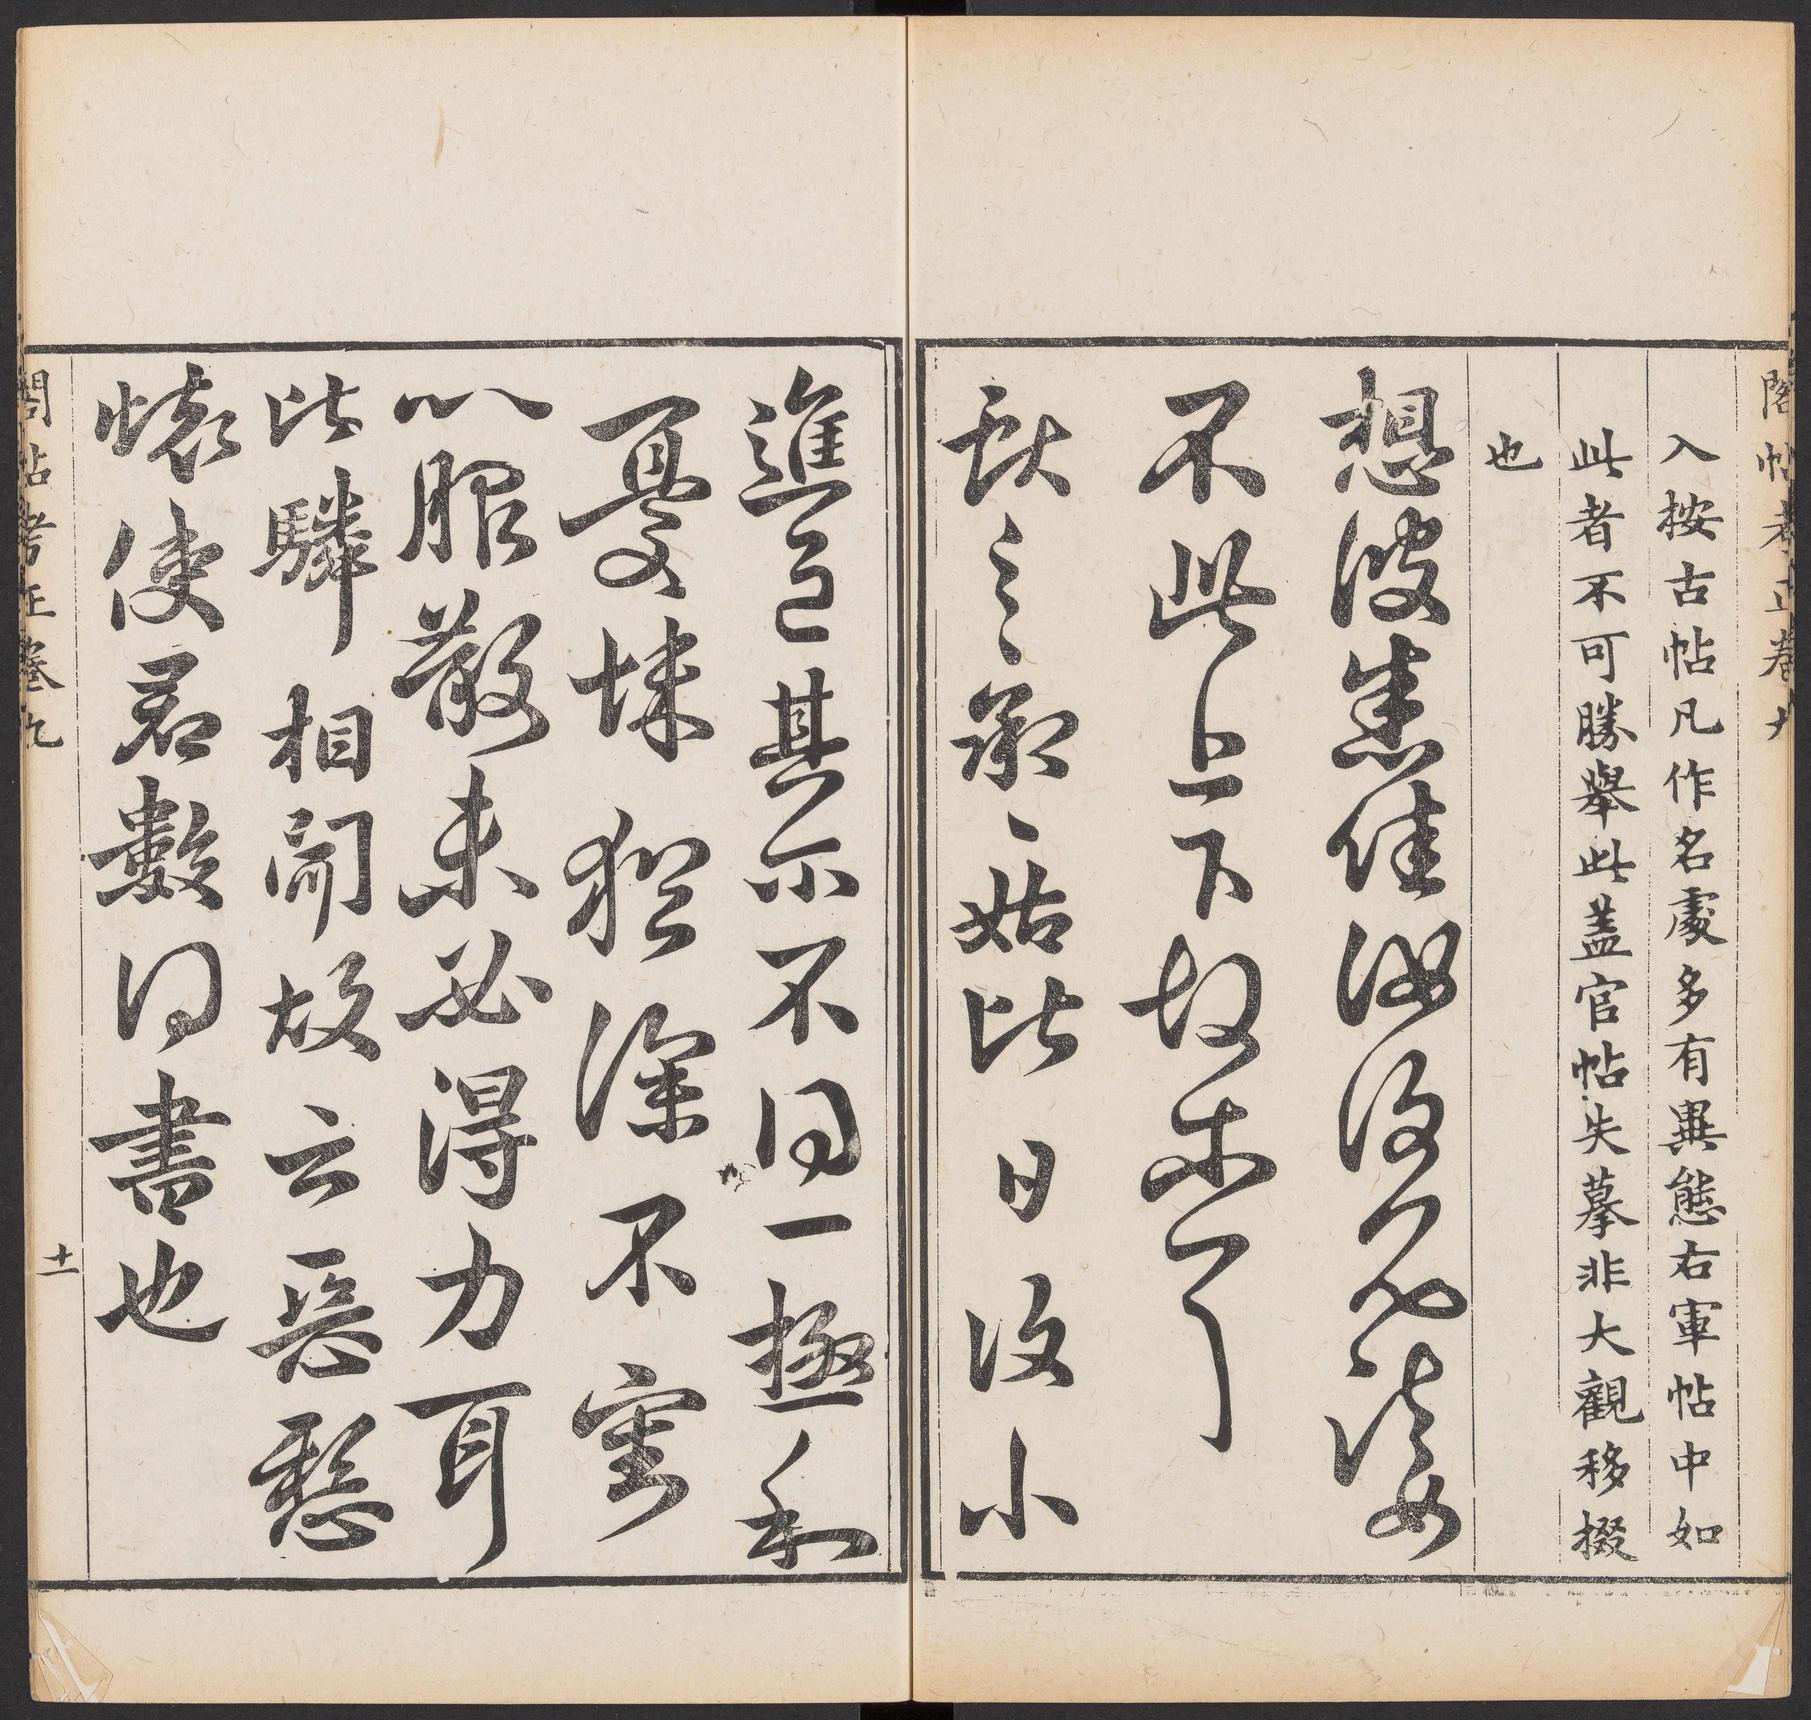 閣帖考正卷九
入按古帖凡作名處多有異態右軍帖中如
此者不可勝舉此蓋官帖失摹非大觀移掇
也
想彼悉佳
不此上下故
獻之承姑比日復小
進退其爾不得一極和
憂悚猶深不審
以服散未必得力耳
比驎相聞故云惡愁
懷使君數得書也
閣帖考正卷九
十一